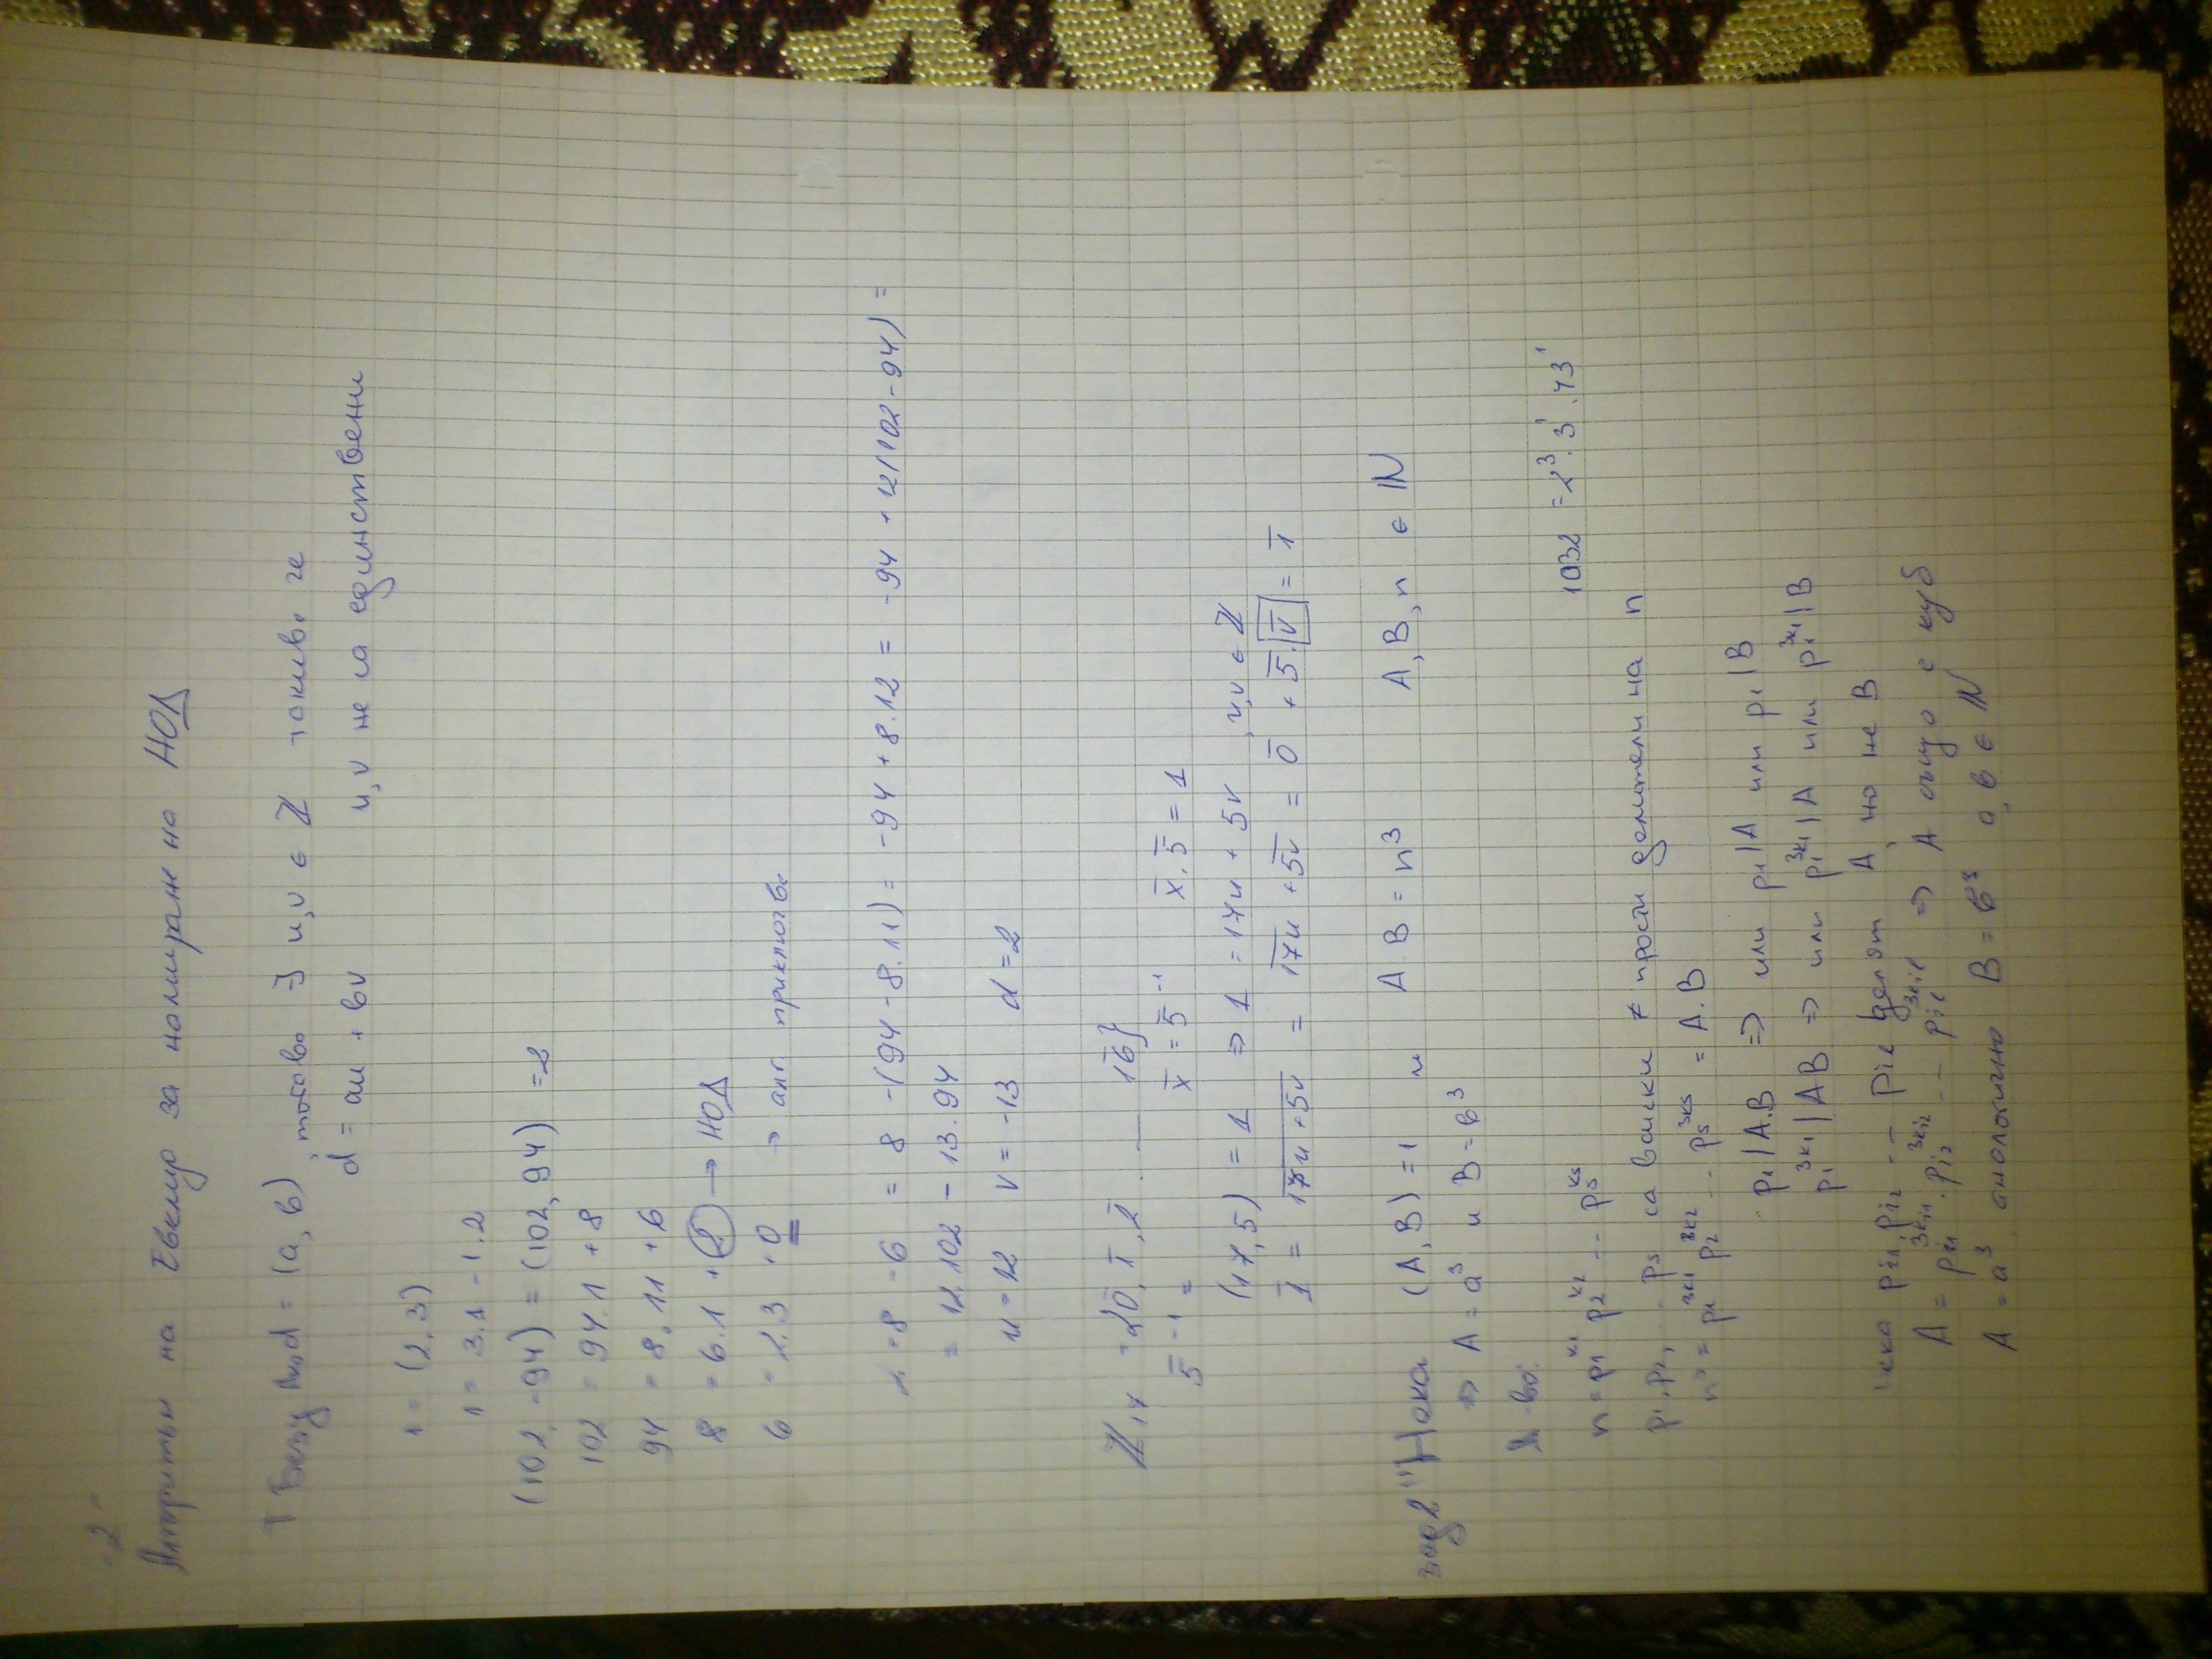 -2-
Алгоритъм на Евклид за намиране на НОД
d = (a, b), тогава ∃ u,v ∈ ℤ такива, че
d = au + bv
u, v не са единствени
1 = (2,3)
1 = 3.1 - 1.2
(102, -94) = (102, 94) = 2
102 = 94.1 + 8
94 = 8.11 + 6
8 = 6.1 + 2 → НОД
6 = 2.3 + 0 ⇒ алг. приключва
2 = 8 - 6 = 8 - (94 - 8.11) = -94 + 8.12 = -94 + 12(102 - 94) =
= 12.102 - 13.94
u = 12 v = -13 d = 2
ℤ₁₇ = {0̅, 1̅, 2̅ ... 1̅6̅}
5̅⁻¹ = x̅ = 5̅⁻¹ x̅.5̅ = 1
(17, 5) = 1 ⇒ 1 = 17u + 5v, u,v ∈ ℤ
1̅ = 1̅7̅u̅ ̅+̅ ̅5̅v̅ = 1̅7̅u̅ + 5̅v̅ = 0̅ + 5̅.v̅ = 1̅
зад2 Нека (A, B) = 1 и A.B = n³ A, B, n ∈ ℕ
⇒ A = a³ и B = b³
Д-во:
1032 = 2³.3¹.43¹
n = p₁ᵏ¹ p₂ᵏ² ... pₛᵏˢ
p₁, p₂, ... pₛ са всички ≠ прости делители на n
n³ = p₁³ᵏ¹ p₂³ᵏ² ... pₛ³ᵏˢ = A.B
p₁ | A.B ⇒ или p₁ | A или p₁ | B
p₁³ᵏ¹ | AB ⇒ или p₁³ᵏ¹ | A или p₁³ᵏ¹ | B
Нека pᵢ₁, pᵢ₂ ... pᵢₗ делят A, но не B
A = pᵢ₁³ᵏⁱ¹ . pᵢ₂³ᵏⁱ² ... pᵢₗ³ᵏⁱˡ ⇒ A също е куб
A = a³, аналогично B = b³ a, b ∈ ℕ